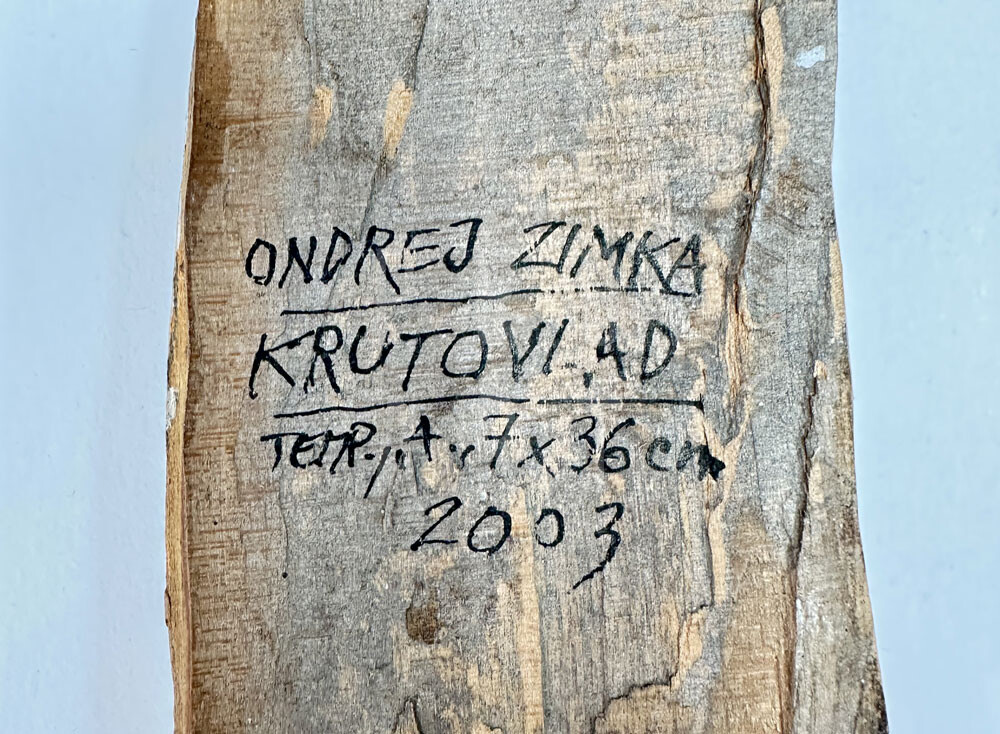 ONDREJ ZIMKA
KRUTOVLAD
TEMP., A., 7 x 36 cm
2003